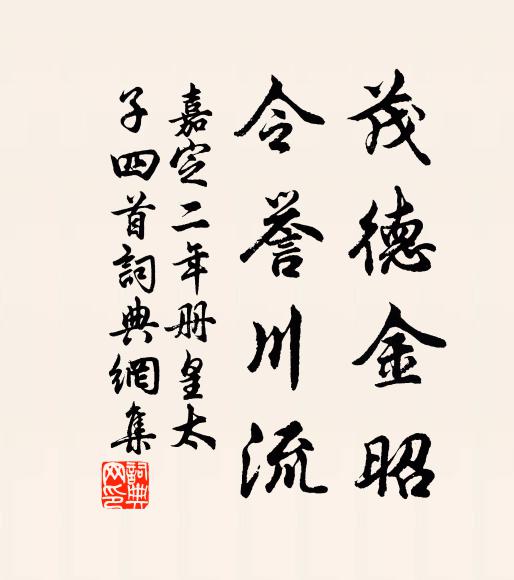 茂德金昭
令誉川流
嘉定二年册皇太
子四首詞典網集
詞典
网印